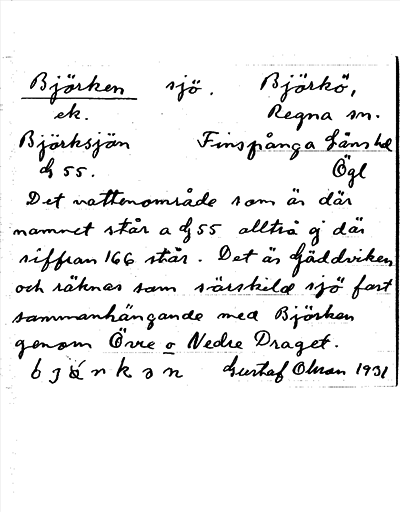 Björken sjö. Björkö,
ek. Regna sn.
Björksjön Finspånga läns hd
G 55. Ögl
Det vattenområde som är där
namnet står a G 55 alltså ej där
siffran 166 står. Det är Gäddviken
och räknas som särskild sjö fast
sammanhängande med Björken
genom Övre o Nedre Draget.
Gustaf Olson 1931